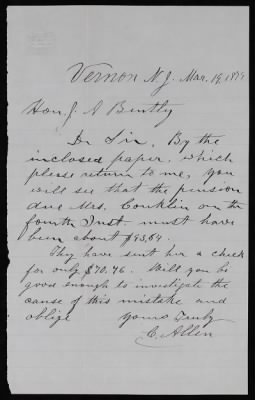 Vernon N.J. Mar. 19, 18
Hon. J. A Bently
Dr Sir, By the
inclosed paper, which
please return to me, you
will see that the pension
due Mrs. Conklin on the
fourth Inst must have
been about $93,64.
They have sent her a check
for only $70.46. Will you be
good enough to investigate the
cause of this mistake and
oblige Yours Truly
C. Allen